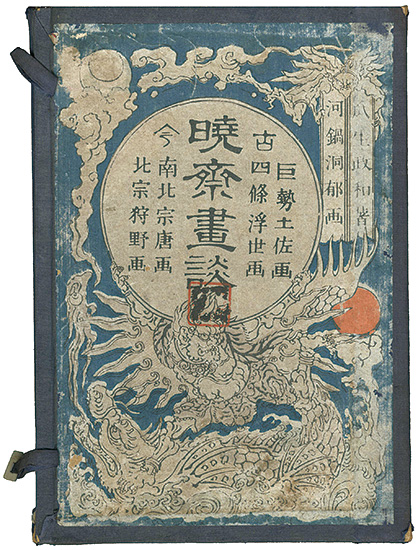 瓜生政和著
河鍋洞郁画
巨勢土佐画
古四條浮世画
暁斎畫談
今南北宗唐画
北宗狩野画